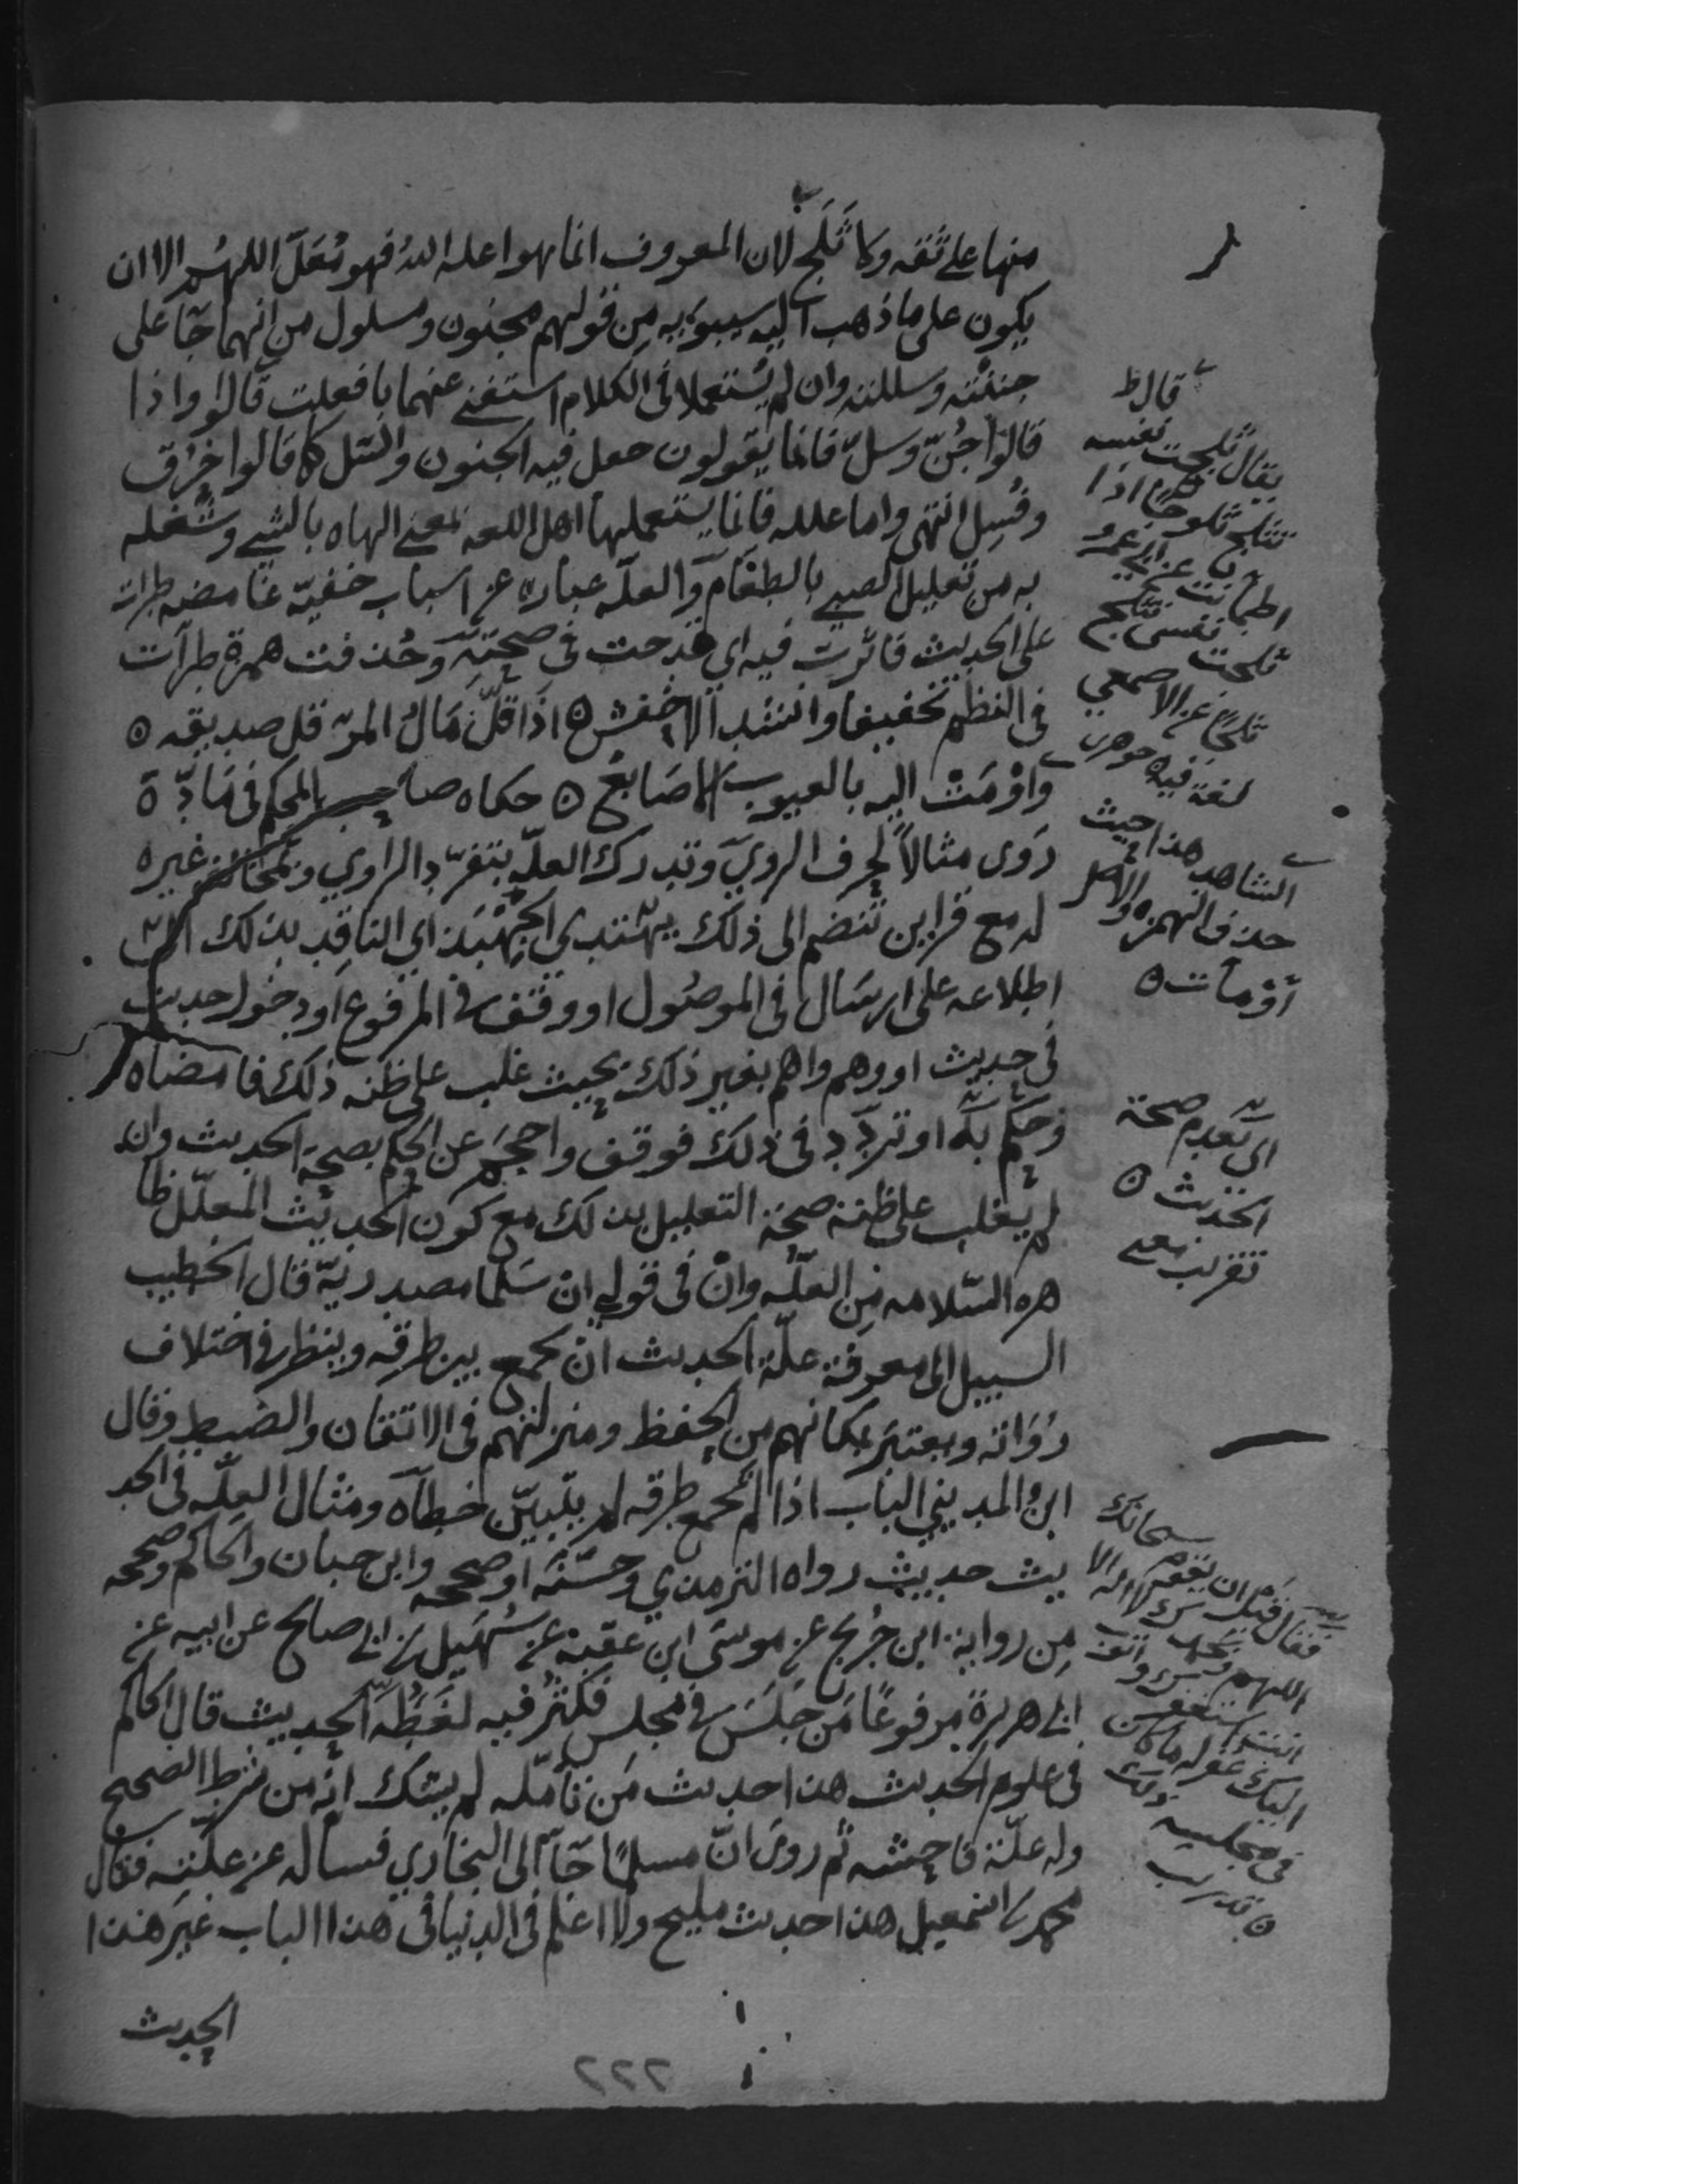 منها على ثقه ولا ثلج لان المعروف انما هو اعله الله فهو مُعَلّ اللهُم الا ان
يكون على ما ذهب اليه سيبويه مِن قولهم مجنون ومسلول من انهما جآ على
جننته وسللته وان لم يُستعملا في الكلام استغنى عنهما بافعلت قالوا واذا
قالوا جُنّ وسلّ فانما يقولون جعل فيه الجنون والسّل كما قالوا حرق
وفُسِل انتهى واما علله فانما يستعملها اهل اللغه بمعنى الهاه بالشي وشغله
به من تعليل الصبي بالطعام والعلّه عباره عن اسباب خفيّه غامضه طرات
على الحديث فاثرت فيه اي قدحت في صحتّه وحُذفت همزة طرآت
في النظم تخفيفا وانشد الاخفش ٥ اذَا قلّ مَالُ المرء قل صديقه ٥
واوْمَتْ اليه بالعيوب الاصَابعُ ٥ حكاه صاحب المحكم في مَادّة
رَوى مثالاً لحرف الرويّ وتدرك العلّه بتفرّد الراوي وبمخالفة غيره
له مع قراين تنضم الى ذلك يهتدى الجِهْبَذ اي الناقد بذلك الى
اطلاعه على ارسَال في الموصُول او وقف في المرفوع او دخول حديث
في حديث او وهم واهم بغير ذلك بحيث غلب على ظنه ذلك فامضاه
وحكم به او تردّد في ذلك فوقف واحجَم عن الحكم بصحة الحديث وان
لم يغلب على ظنه صحة التعليل بذلك مع كون الحديث المعلّل ظا
هره السّلامه مِن العلّه وانْ في قوله ان سَلما مصدريّة قال الخطيب
السبيل الى معرفة علّة الحديث انْ يجمع بين طرقه وينظر في اختلاف
رُوَاته ويعتبَر بمكانهم من الحفظ ومنزلتهم في الاتقان والضبط وقال
ابن المديني الباب اذا لم تجمع طرقه لم يتبيّن خطآه ومثال العِلّه في الحد
يث حديث رواه الترمذي وحسّنه او صححه وابن حبان والحاكم وصححه
مِن رواية ابن جُريج عن موسَى ابن عقبة عن سُهَيل بن ابي صالح عن ابيه عن
ابي هريرة مرفوعًا مَن جَلَسَ في مجلس فكثُر فيه لغَطُه الحديث قال الحاكم
في علوم الحديث هذا حديث مَن تأمّله لم يشك انه من شرط الصحيح
وله علّة فاحشه ثم روى انّ مسلمًا جآ الى البخاري فسأله عن علّته فقال
محمد بن اسمعيل هذا حديث مليح ولا اعلم في الدنيا في هذا الباب غيرَ هذا
الحديث
قال
يقال ثلجت نفسه
تثلج ثلوجا اذا
اطمأنت عن ابي عمرو
ثلجت نفسى تثلج
ثلجا عن الاصمعي
لغة فيه جوهري
الشاهد هذا حيث
حذف الهمزه والاصل
أوْمأت ٥
اى بعدم صحة
الحديث ٥
تقريب معنى
فقال قبل ان يقوم سبحانك
اللهم وبحمدك لا اله الا
انت استغفرك واتوب
اليك غفر له ما كان
في مجلسه ذلك
٥ تدريب
٢٢٢